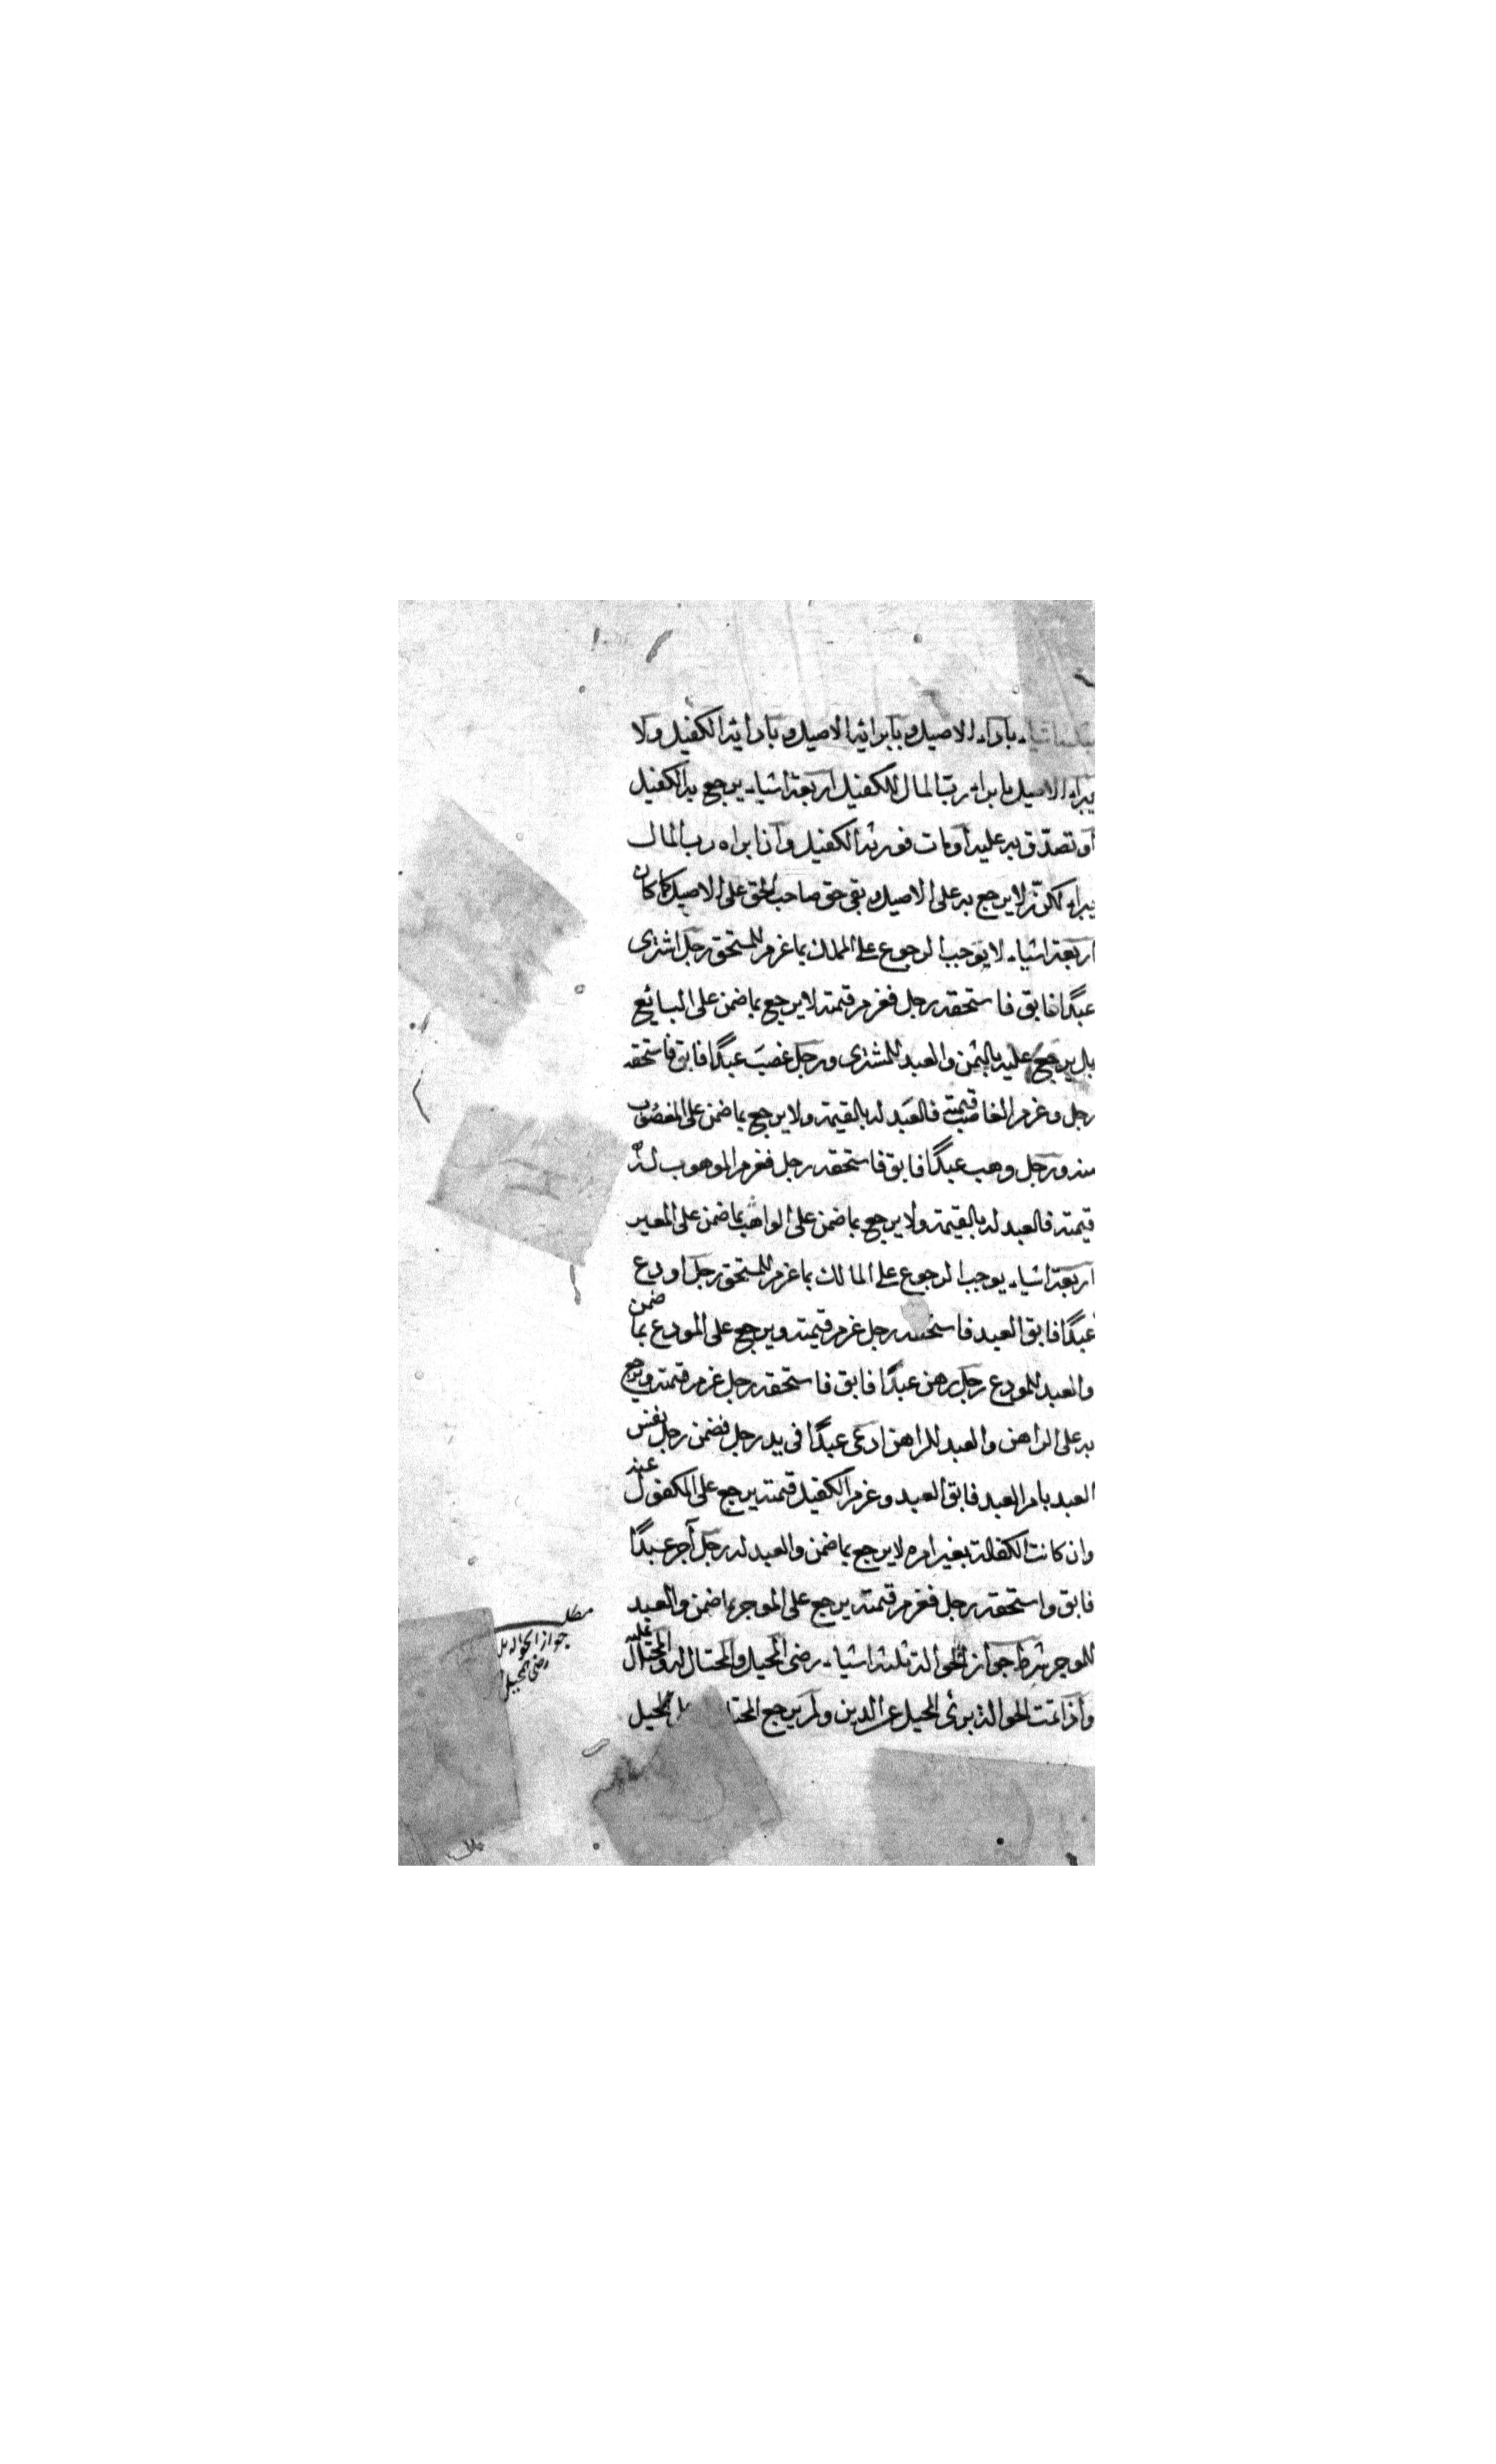 بثلثة اشياء باداء الاصيل وبابرائه الاصيل وباداية الكفيل ولا
يبراء الاصيل بابراء رب المال للكفيل اربعة اشياء يرجع به الكفيل
او تصدق به عليه او مات فورثه الكفيل واذا ابراه رب المال
يبراء لكنه لا يرجع به على الاصيل وبقى حق صاحب الحق على الاصيل كما كان
اربعة اشياء لا يوجب الرجوع على المملك بما غرم للمستحق رجل اشترى
عبدًا فابق فاستحقه رجل فغرم قيمته لا يرجع بما ضمن على البايع
بل يرجع عليه بالثمن والعبد للمشترى ورجل غصب عبدًا فابق فاستحقه
رجل وغرم الغاصب قيمته فالعبد له بالقيمة ولا يرجع بما ضمن على المغصوب
منه ورجل وهب عبدًا فابق فاستحقه رجل فغرم الموهوب له
قيمته فالعبد له بالقيمة ولا يرجع بما ضمن على الواهب بما ضمن على المعير
اربعة اشياء يوجب الرجوع على المالك بما غرم للمستحق رجل اودع
عبدًا فابق العبد فاستحقه رجل غرم قيمته ويرجع على المودع بما ضمن
والعبد للمودع رجل رهن عبدًا فابق فاستحقه رجل غرم قيمته ويرجع
به على الراهن والعبد للراهن ادعى عبدًا في يد رجل فضمن رجل بنفس
العبد بامر العبد فابق العبد وغرم الكفيل قيمته يرجع على المكفول عنه
وان كانت الكفالة بغير امره لا يرجع بما ضمن والعبد له رجل آجر عبدًا
فابق واستحقه رجل فغرم قيمته يرجع على الموجر بما ضمن والعبد
للموجر شرط جواز الحوالة ثلثة اشياء رضى المحيل والمحتال له والمحتال عليه
واذا تمت الحوالة برئ المحيل عن الدين ولم يرجع المحتال على المحيل
مطلب
جواز الحوالة
رضى المحيل